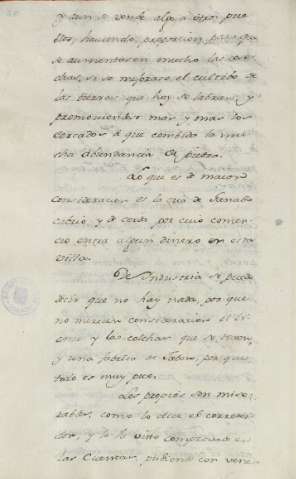 y aun se vende algo a otros pue
blos, haciendo, exposicion para que
se aumentasen mucho las co
chas, si se mejorase el cultibo de
las tierras que hoy se labran, y
promoviendo mas, y mas los
cercados a que combida la mu
cha abundancia de piedra.
Lo que es de maior
consideracion es la cria de Ganado
cabrio, y de cerda por cuio comer
cio entra algun dinero en esta
villa.
De Industria se puede
decir que no hay nada, por que
no merecen consideracion el li
enzo y las colchas que se texen,
y una fabrica de Jabon, por que
todo es muy poco.
Los propios son mise
rables, como lo dice el corregi
dor, y lo he visto comprobado en
las Cuentas, pidiendo con